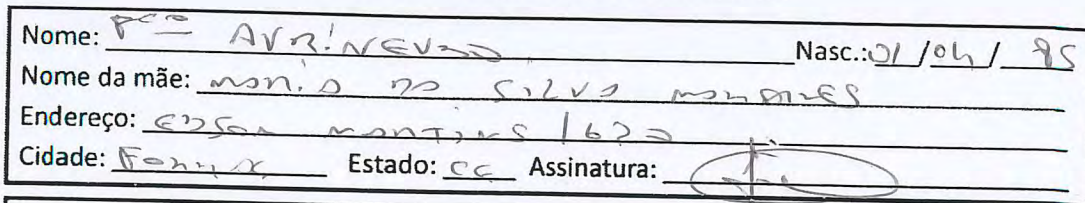 Nome: Fco AVRINEUDO Nasc.: 01/04/85
Nome da mãe: MARIA DA SILVA
Endereço: EDSON MARTINS 1620
Cidade: Estado: CE Assinatura: